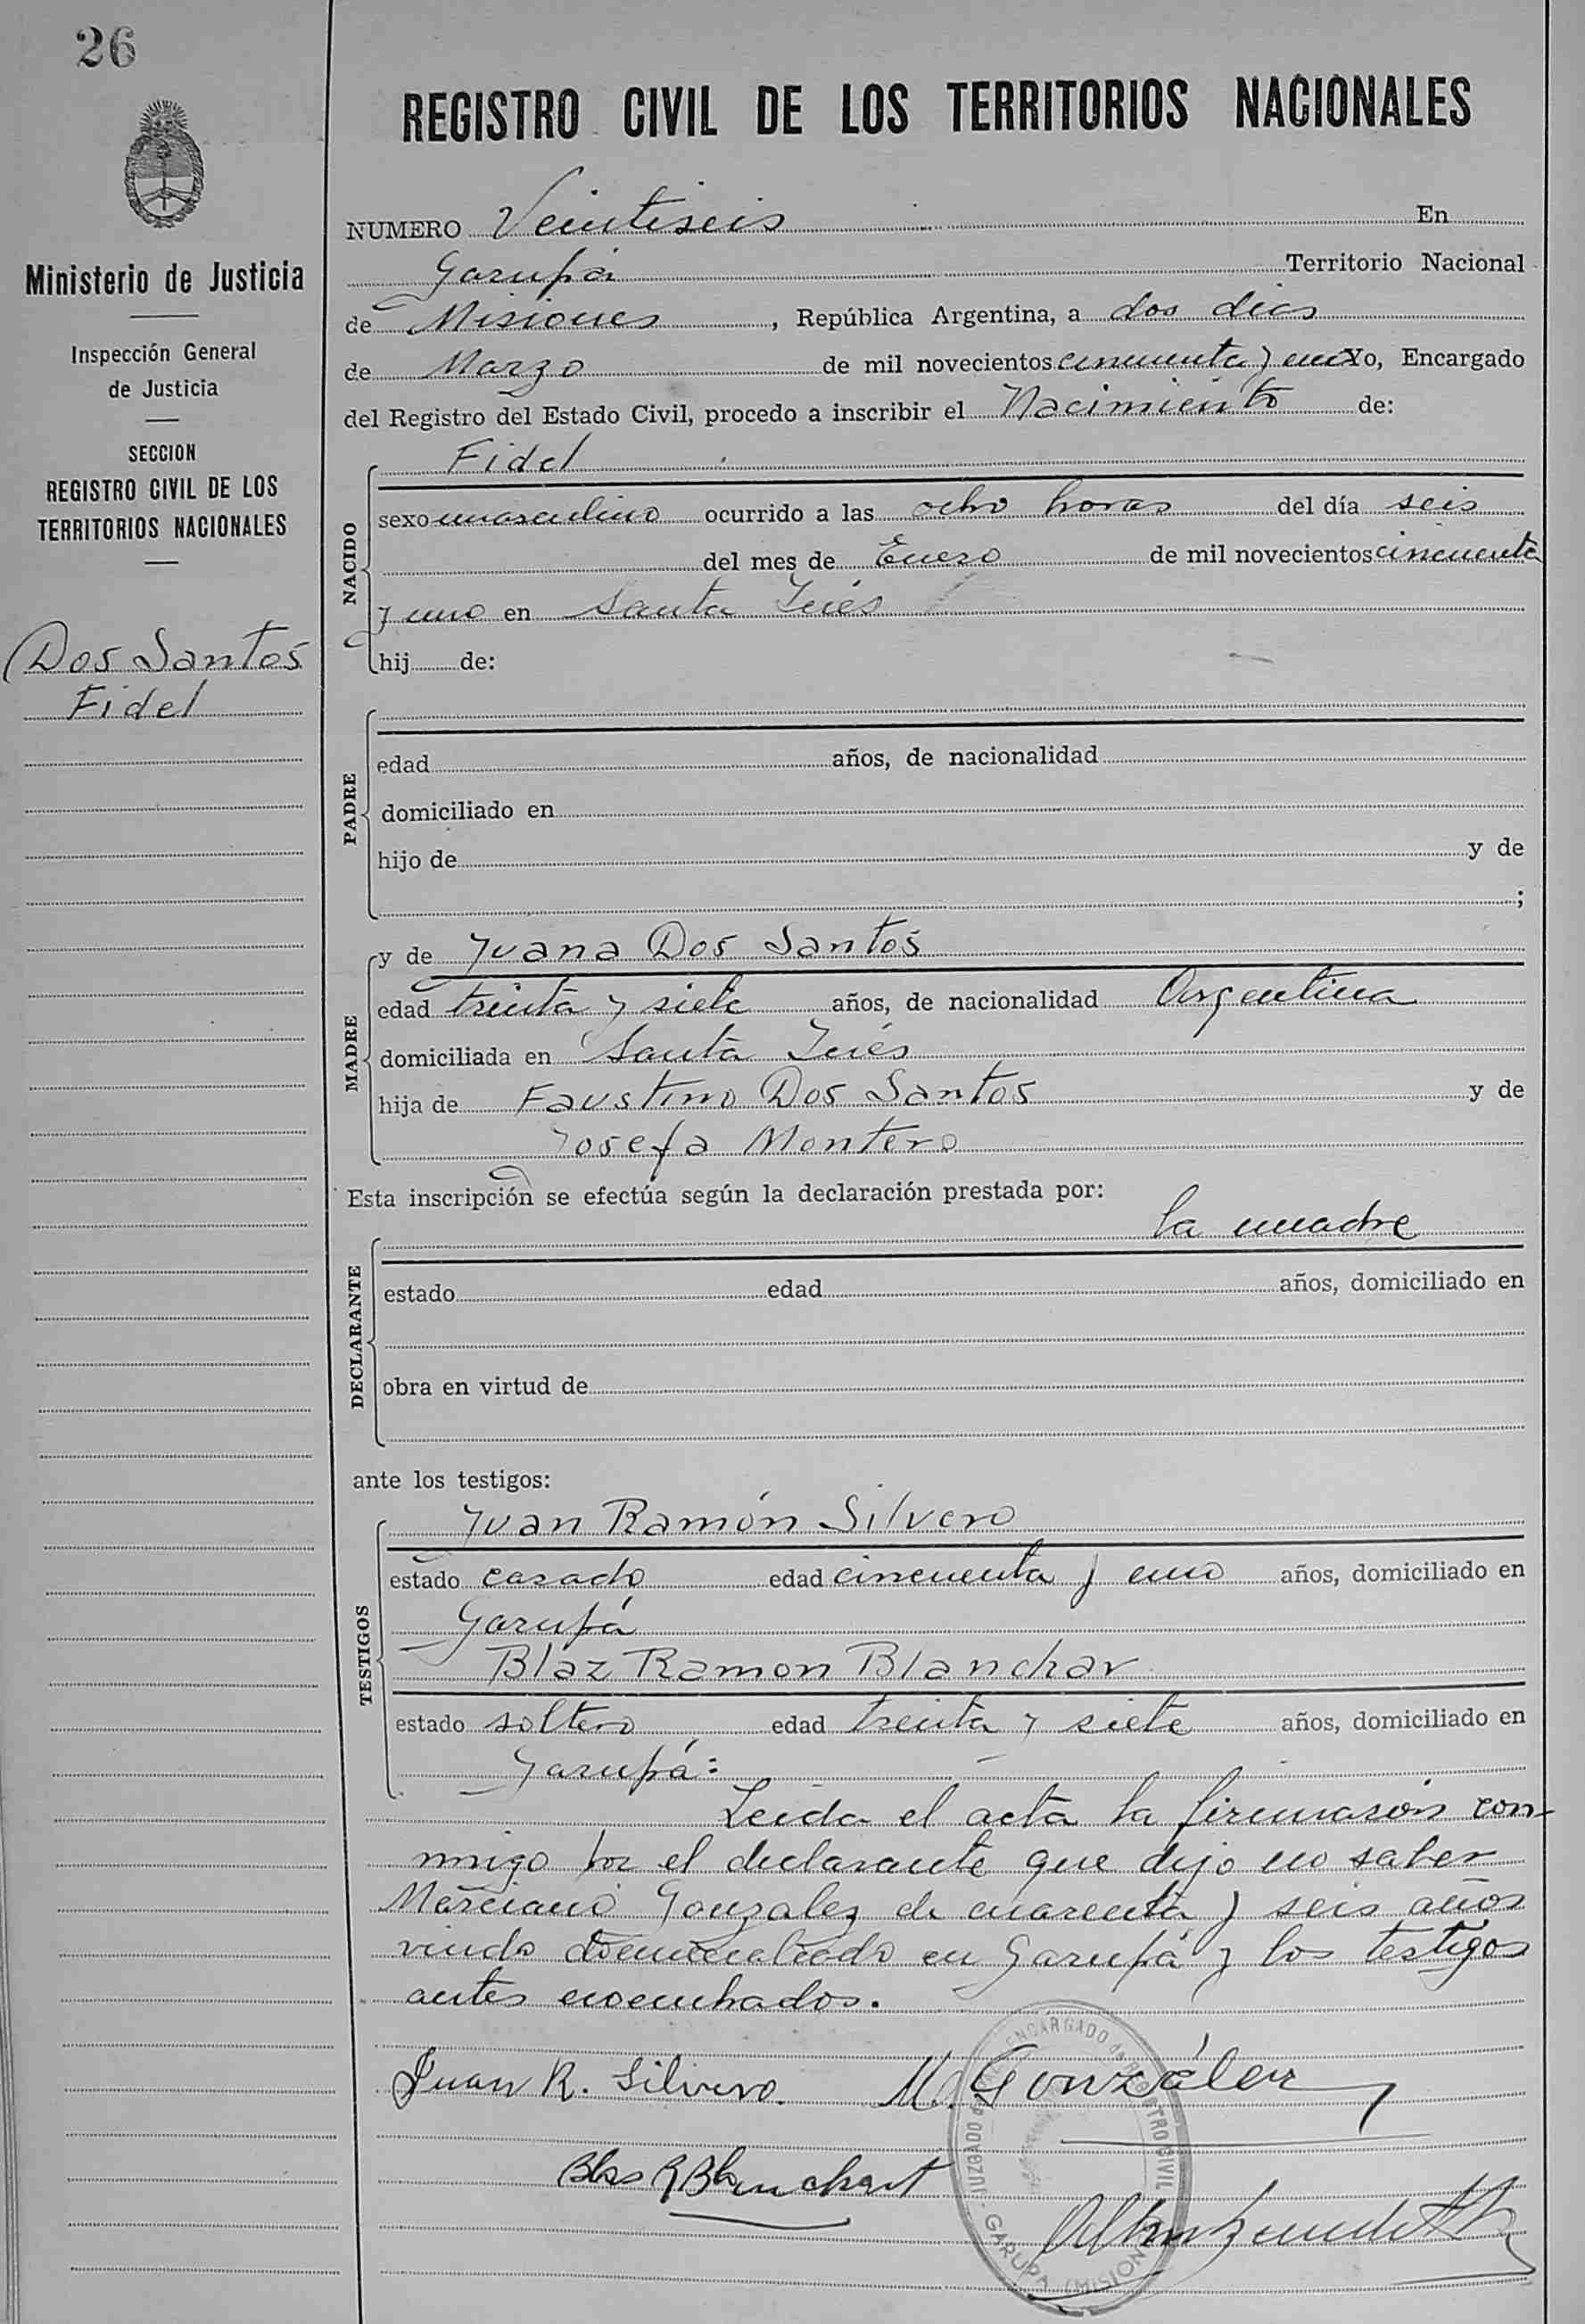 26
Ministerio de Justicia
Inspección General
de Justicia
SECCION
REGISTRO CIVIL DE LOS
TERRITORIOS NACIONALES
Dos Santos
Fidel
REGISTRO CIVIL DE LOS TERRITORIOS NACIONALES
NUMERO Veintiseis En
Garupá Territorio Nacional
de Misiones, República Argentina, a dos dias
de Marzo de mil novecientos cincuenta y uno Yo, Encargado
del Registro del Estado Civil, procedo a inscribir el Nacimiento de:
NACIDO
Fidel
sexo masculino ocurrido a las ocho horas del día seis
del mes de Enero de mil novecientos cincuenta
y uno en Santa Inés
hij de:
PADRE
edad años, de nacionalidad
domiciliado en
hijo de y de
;
MADRE
y de Juana Dos Santos
edad treinta y siete años, de nacionalidad Argentina
domiciliada en Santa Inés
hija de Faustino Dos Santos y de
Josefa Montero
Esta inscripción se efectúa según la declaración prestada por:
DECLARANTE
la madre
estado edad años, domiciliado en
obra en virtud de
ante los testigos:
TESTIGOS
Juan Ramón Silvero
estado casado edad cincuenta y uno años, domiciliado en
Garupá
Blaz Ramon Blanchar
estado soltero edad treinta y siete años, domiciliado en
Garupá=
Leida el acta la firmaron con-
migo por el declarante que dijo no saber
Marciano Gonzalez de cuarenta y seis años
viudo domiciliado en Garupá y los testigos
antes
Juan R. Silvero. M. González
Blas R Blanchart
JUZGADO ENCARGADO de REGISTRO CIVIL
GARUPA (MISIONES)